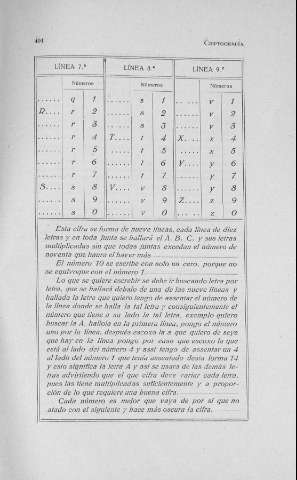 401
CRIPTOGRAFÍA
LÍNEA 7.ª LÍNEA 8.ª LÍNEA 9.ª
Números Números Números
...... q 1 ...... s 1 ...... v 1
R.... r 2 ...... s 2 ...... v 2
...... r 3 ...... s 3 ...... v 3
...... r 4 T.... t 4 X.... x 4
...... r 5 ...... t 5 ...... x 5
...... r 6 ...... t 6 Y.... y 6
...... r 7 ...... t 7 ...... y 7
S.... s 8 V.... v 8 ...... y 8
...... s 9 ...... v 9 Z.... z 9
...... s 0 ...... v 0 ...... z 0
Esta cifra se forma de nueve líneas, cada línea de diez
letras y en toda junta se hallará el A. B. C. y sus letras
multiplicadas sin que todas juntas excedan el número de
noventa que hauía el haver más
El número 10 se escribe con solo un cero, porque no
se equivoque con el número 1.
Lo que se quiere escrebir se debe ir buscando letra por
letra, que se hallará debajo de una de las nueve líneas y
hallada la letra que quiero tengo de assentar el número de
la línea donde se halla la tal letra y consiguientemente el
número que tiene a su lado la tal letra, exemplo quiero
buscar la A, hallola en la primera línea, pongo el número
uno por la línea, después escuxo la a que quiero de seys
que hay en la línea pongo por caso que escuxo la que
está al lado del número 4 y assí tengo de assentar un 4
al lado del número 1 que tenía assentado desta forma 14
y esto significa la letra A y assí se usará de las demás le-
tras advirtiendo que el que cifra deve variar cada letra,
pues las tiene multiplicadas suficientemente y a propor-
ción de lo que requiere una buena cifra.
Cada número es mejor que vaya de por sí que no
atado con el siguiente y hace más oscura la cifra.